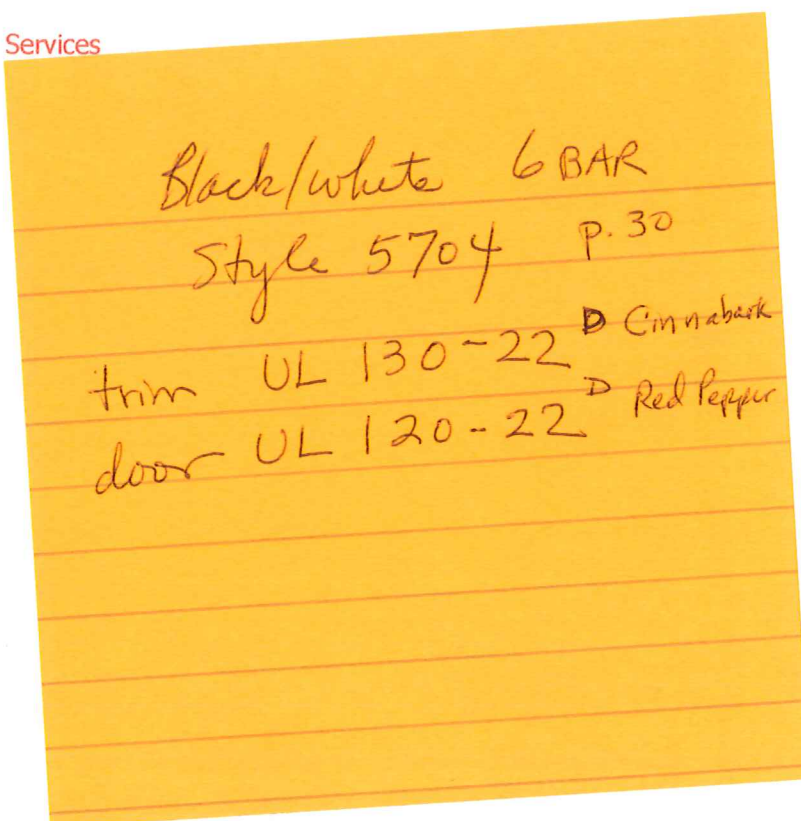 Services
Black/white 6 BAR
Style 5704 p. 30
trim UL 130-22 D Cinnabark
door UL 120-22 D Red Pepper